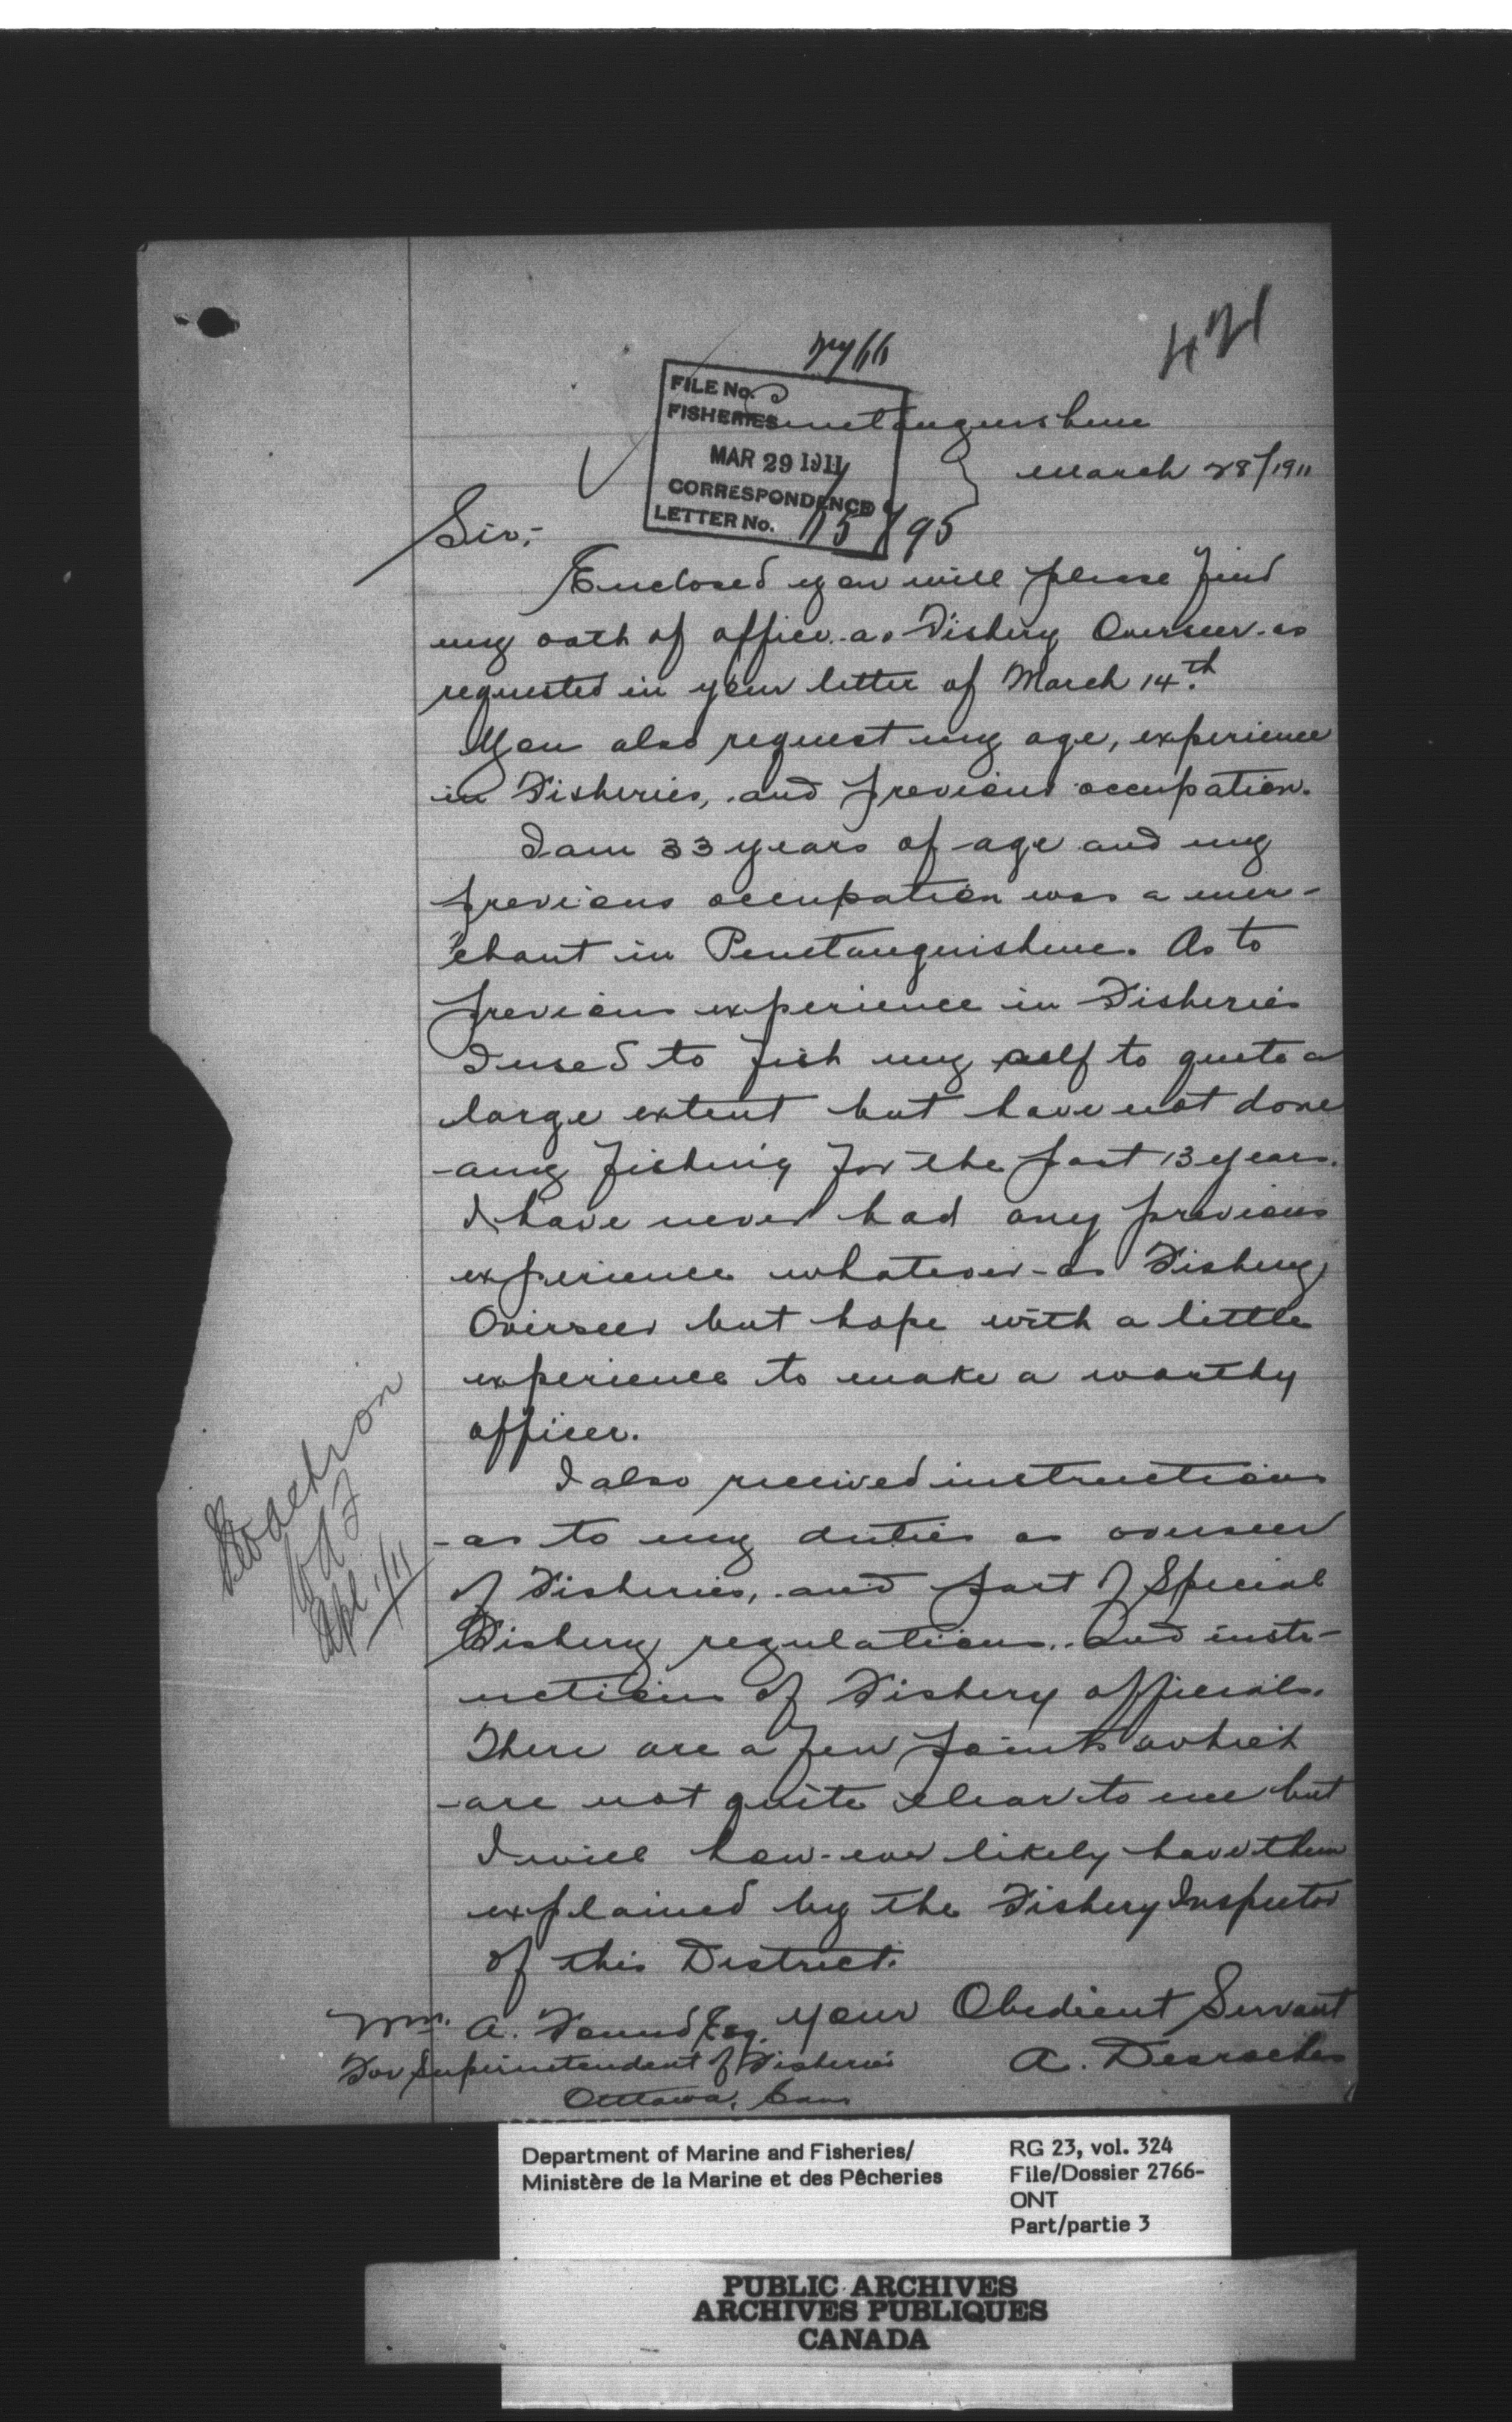 421
2766
FILE No.
FISHERIES
MAR 29 1911
CORRESPONDENCE
LETTER No. 15795
Penetanguishene
March 28/1911
Sir:-
Enclosed you will please find
my oath of office as Fishery Overseer as
requested in your letter of March 14th.
You also request my age, experience
in Fisheries, and previous occupation.
I am 33 years of age and my
previous occupation was a mer-
chant in Penetanguishene. As to
previous experience in Fisheries
I used to fish my self to quite a
large extent but have not done
any fishing for the past 13 years.
I have never had any previous
experience whatever as Fishery
Overseer but hope with a little
experience to make a worthy
officer.
I also received instructions
as to my duties as overseer
of Fisheries, and part of Special
Fishery regulations and instr-
uctions of Fishery officials.
There are a few points which
are not quite clear to me but
I will how-ever likely have them
explained by the Fishery Inspector
of this District.
Your Obedient Servant
A. Desroches
Wm. A. Found Esq.
For Superintendent of Fisheries
Ottawa, Can
Apl 1/11
Department of Marine and Fisheries/
Ministère de la Marine et des Pêcheries
RG 23, vol. 324
File/Dossier 2766-
ONT
Part/partie 3
PUBLIC ARCHIVES
ARCHIVES PUBLIQUES
CANADA